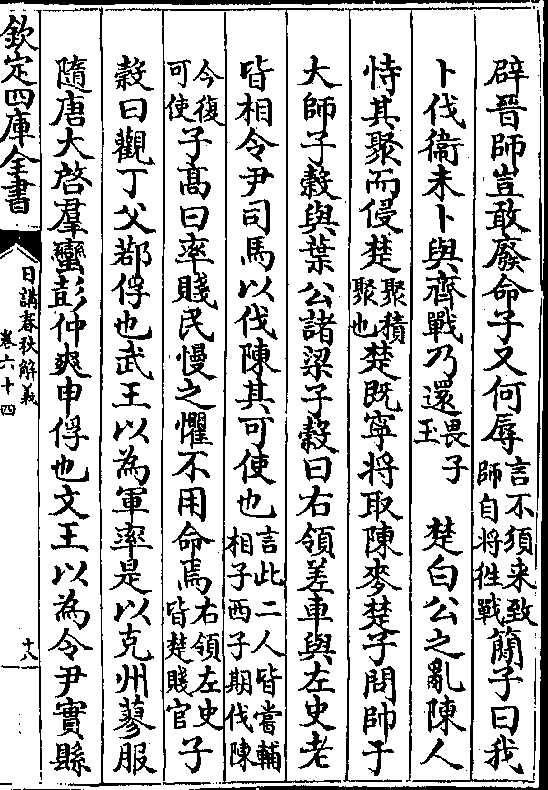 辟晉師豈敢廢命子又何辱言不須来致師自將徃戰簡子曰我
卜伐衞未卜與齊戰乃還畏子玉　楚白公之亂陳人
恃其聚而侵楚聚積聚也楚既寧將取陳麥楚子問帥于
大師子糓與葉公諸梁子糓曰右領差車與左史老
皆相令尹司馬以伐陳其可使也言此二人皆嘗輔相子西子期伐陳
今復可使子髙曰率賤民慢之懼不用命焉右領左史皆楚賤官子
糓曰觀丁父鄀俘也武王以為軍率是以克州蓼服
隨唐大啓羣蠻彭仲爽申俘也文王以為令尹實縣
欽定四庫全書
日講春秋解義
卷六十四
十八